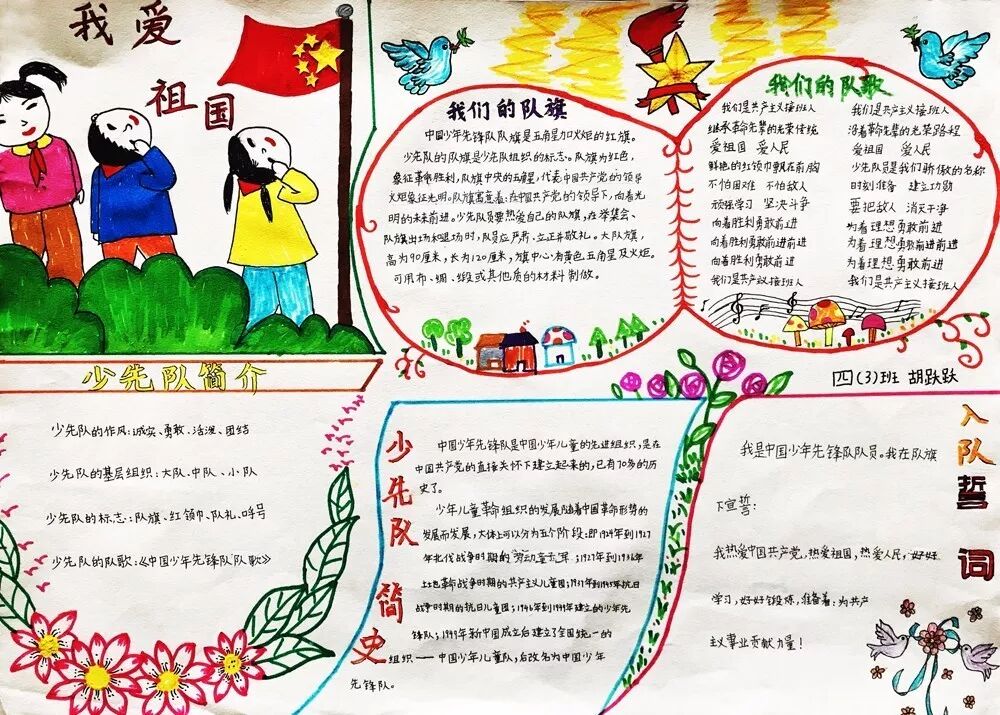 我爱
祖国
我们的队旗
中国少年先锋队队旗是五角星加火炬的红旗。
少先队的队旗是少先队组织的标志。队旗为红色，
象征革命胜利，队旗中央的五角星，代表中国共产党的领导
火炬象征光明。队旗寓意着：在中国共产党的领导下，向着光
明的未来前进。少先队员要热爱自己的队旗，在举集会、
队旗出场和退场时，队员应严肃、立正并敬礼。大队旗，
高为90厘米，长为120厘米，旗中心有黄色五角星及火炬。
可用布、绸、缎或其他质的材料制做。
我们的队歌
我们是共产主义接班人
继承革命先辈的光荣传统
爱祖国 爱人民
鲜艳的红领巾飘在前胸
不怕困难 不怕敌人
顽强学习 坚决斗争
向着胜利勇敢前进
向着胜利勇敢前进前进
向着胜利勇敢前进
我们是共产主义接班人
我们是共产主义接班人
沿着革命先辈的光荣路程
爱祖国 爱人民
少先队员是我们骄傲的名称
时刻准备 建立功勋
要把敌人 消灭干净
为着理想勇敢前进
为着理想勇敢前进前进
为着理想勇敢前进
我们是共产主义接班人
四(3)班 胡跃跃
少先队简介
少先队的作风：诚实、勇敢、活泼、团结
少先队的基层组织：大队、中队、小队
少先队的标志：队旗、红领巾、队礼、呼号
少先队的队歌：《中国少年先锋队队歌》
少先队 简史
中国少年先锋队是中国少年儿童的先进组织，是在
中国共产党的直接关怀下建立起来的，已有70多的历
史了。
少年儿童革命组织的发展随着中国革命形势的
发展而发展，大体上可以分为五个阶段：即1924年到1927
年北伐战争时期的劳动童子军；1927年到1936年
土地革命战争时期的共产主义儿童团；1937年到1945年抗日
战争时期的抗日儿童团；1946年到1949年建立的少年先
锋队；1949年新中国成立后建立了全国统一的
组织——中国少年儿童队，后改名为中国少年
先锋队。
入队誓词
我是中国少年先锋队队员。我在队旗
下宣誓：
我热爱中国共产党，热爱祖国，热爱人民，好好
学习，好好锻炼，准备着：为共产
主义事业贡献力量！